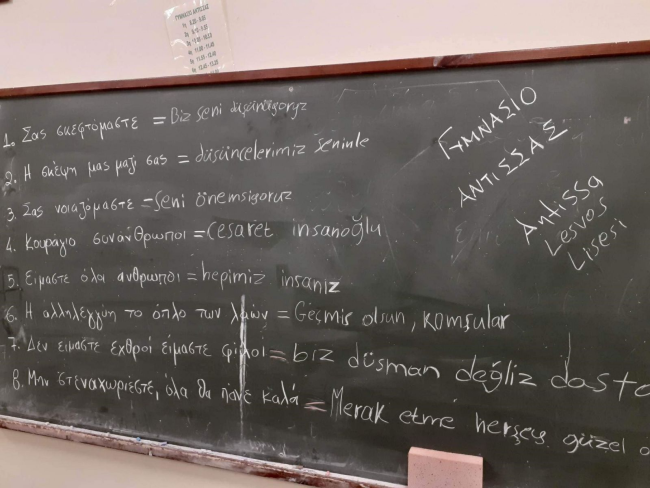 ΓΥΜΝΑΣΙΟ ΑΝΤΙΣΣΑΣ
1. Σας σκεφτόμαστε = Biz seni düşünüyoruz
2. Η σκέψη μας μαζί σας = düşüncelerimiz seninle
3. Σας νοιαζόμαστε - seni önemsiyoruz
4. Κουράγιο συνάνθρωποι = cesaret insanoğlu
5. Είμαστε όλοι άνθρωποι = hepimiz insanız
6. Η αλληλεγγύη το όπλο των λαών = Geçmiş olsun, komşular
7. Δεν είμαστε εχθροί είμαστε φίλοι = biz düşman değiliz
8. Μην στεναχωριέστε, όλα θα πάνε καλά = Merak etme herşey güzel
ΓΥΜΝΑΣΙΟ
ΑΝΤΙΣΣΑΣ
Antissa
Lesvos
Lisesi